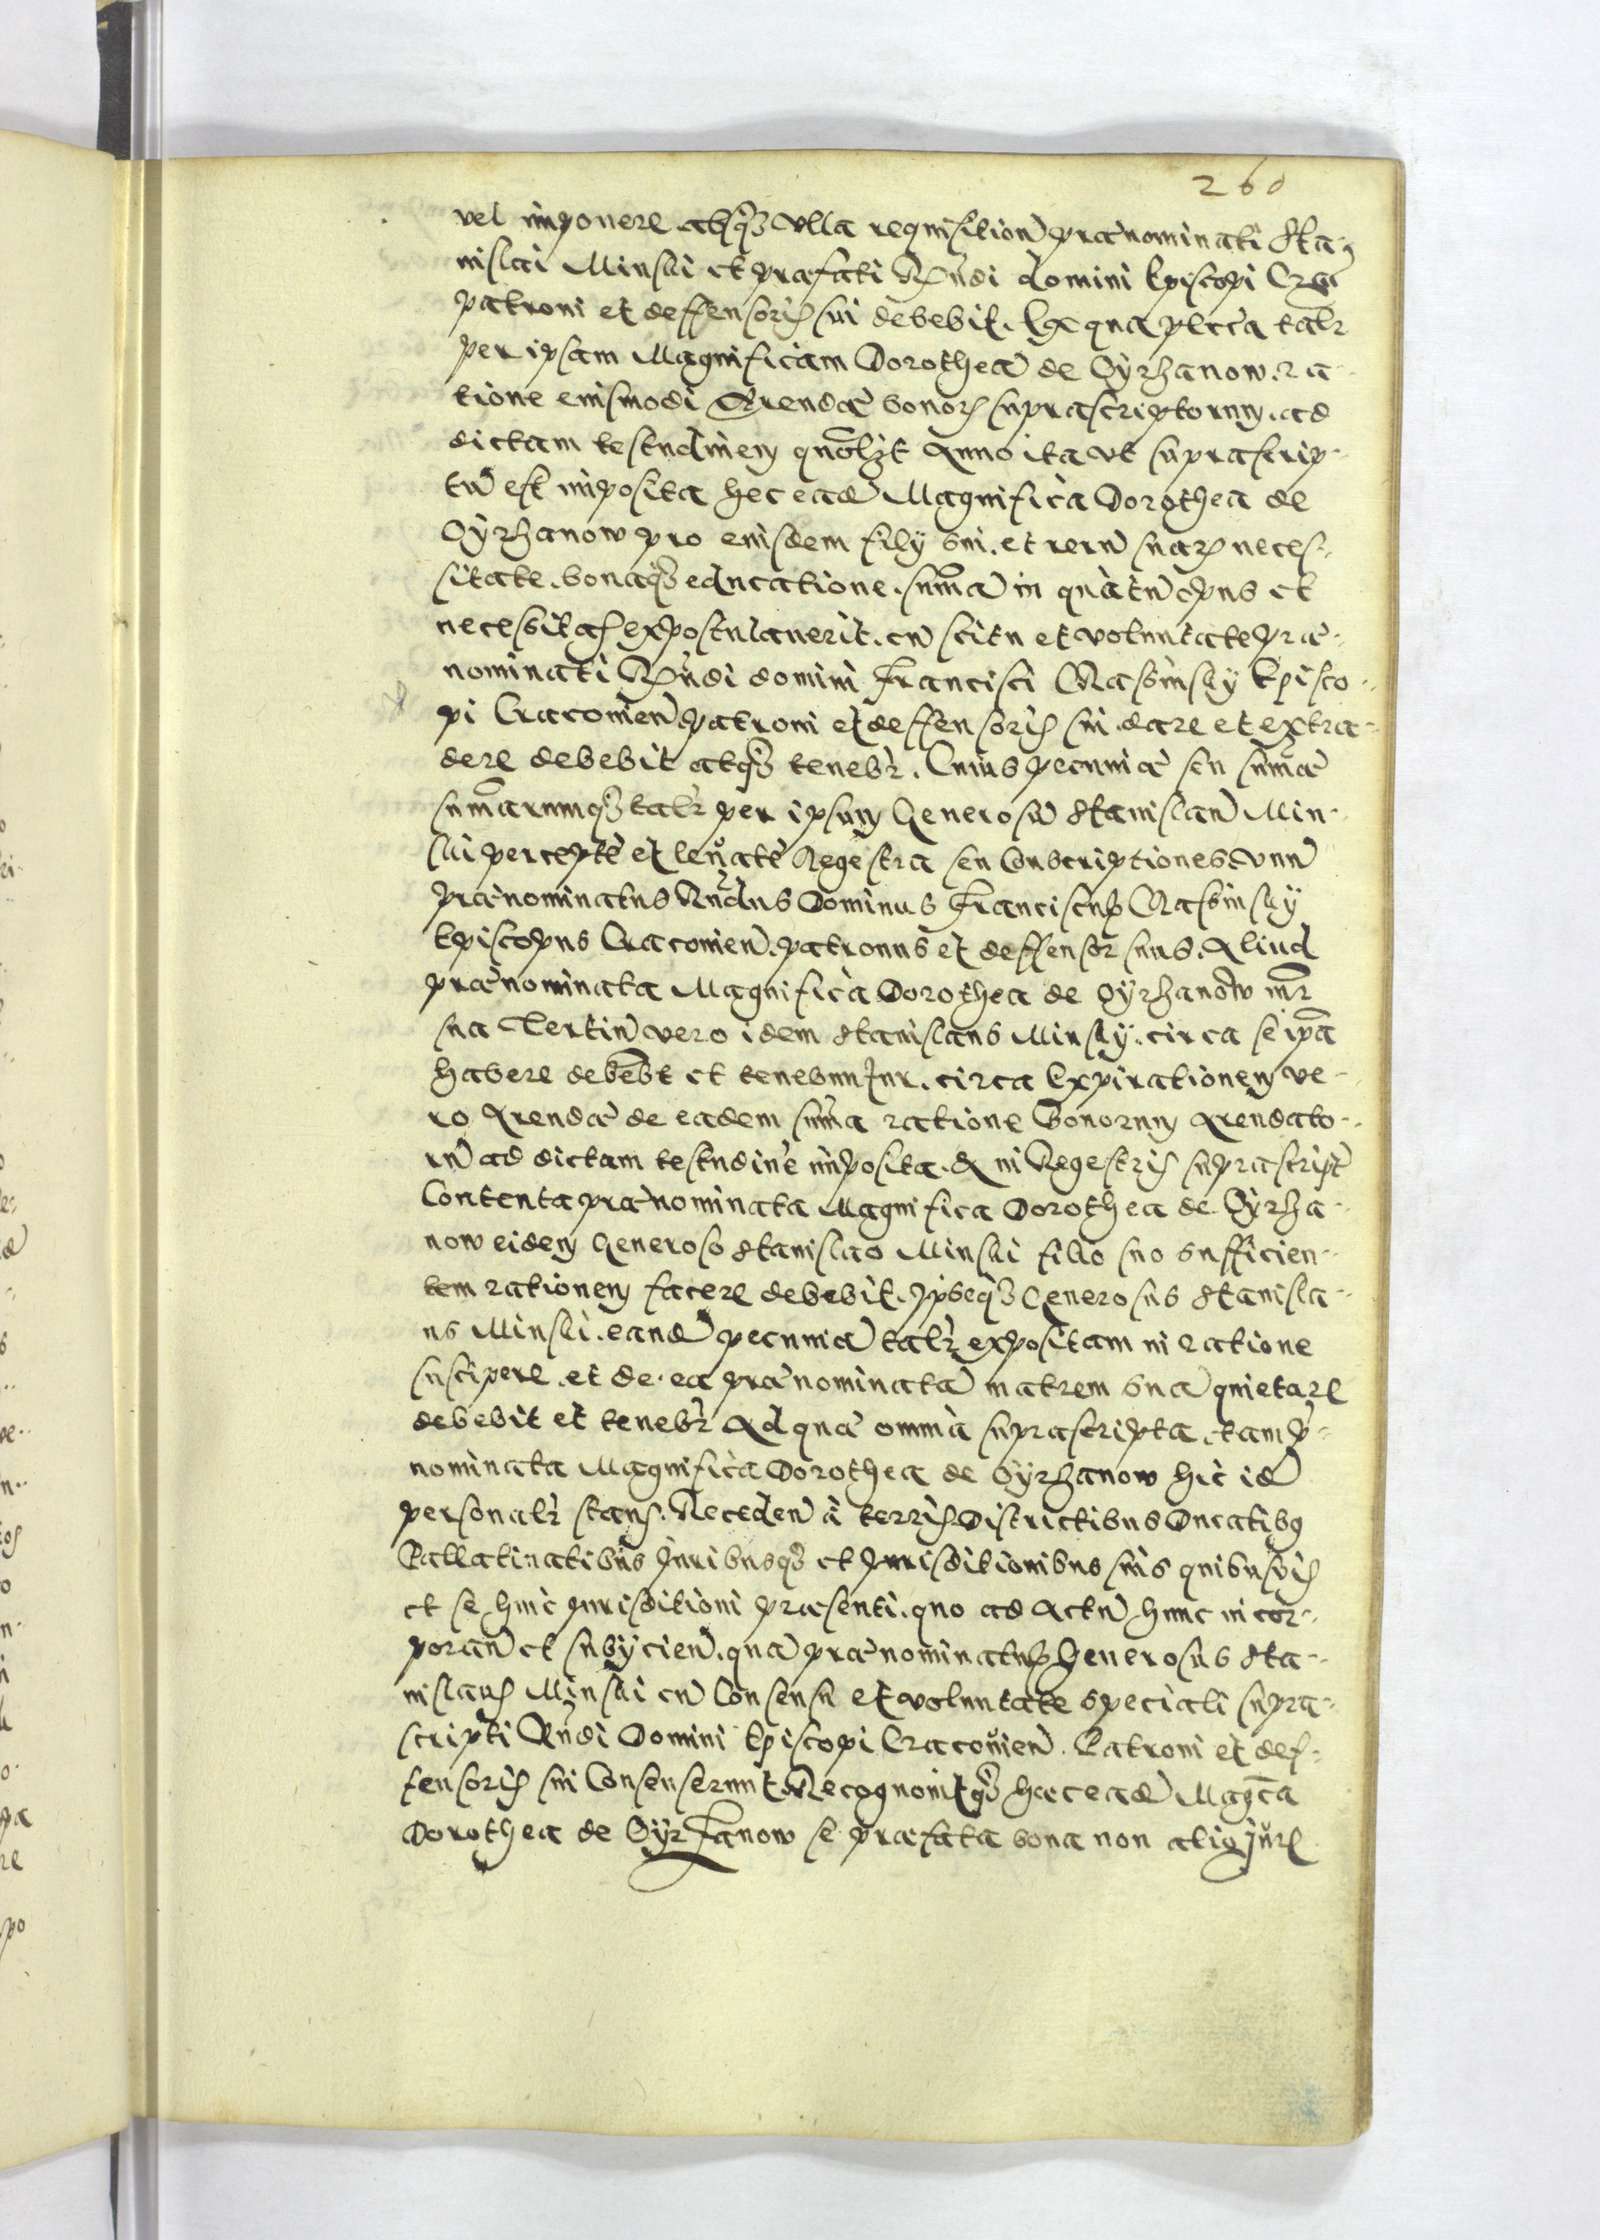 260
vel imponere absq3 vlla requisition̄ prænominati Sta-
nislai Minski et præfati R̄ndi domini Episcopi Crac
patroni et deffensoris sui debebit. Ex qua ptcca talr
per ipsam Magnificam Dorothea de Syrzanow ra-
tione eiusmodi Arendæ bonor suprascriptorum ad
dictam testudinem quolzt Anno ita vt suprascrip-
tu est imposita hec eade Magnifica Dorothea de
Syrzanow pro eiusdem filÿ sui et reru suar neces-
sitate bonaq3 educatione suma in quatu opus et
necessitas expostulauerit cu scitu et voluntate præ-
nominati R̄ndi domini Francisci Krasinsky Episco-
pi Cracouien patroni et deffensoris sui dare et extra-
dere debebit atq3 tenebr. Cuius pecuniæ seu sumæ
sumarumq3 talr per ipsum Generosu Stanislau Min-
ski percepte et leuatæ Regestra seu Conscriptiones vnu
prænominatus R̄ndus Dominus Franciscus Krasinsky
Episcopus Cracouien patronus et deffensor suus. Aliud
prænominata Magnifica Dorothea de Syrzanow mr
sua Tertiu vero idem Stanislaus Minsky circa se ipa
habere debebt et tenebuntur. circa Expirationem ve-
ro Arendæ de eadem suma ratione bonorum Arendato-
ru ad dictam testudine imposita & in Regestris suprascript
Contenta prænominata Magnifica Dorothea de Syrza-
now eidem Generoso Stanislao Minski filio suo sufficien-
tem rationem facere debebit. Ipseq3 Generosus Stanisla-
us Minski eande pecunia talr expositam in ratione
suscipere et de ea prænominata matrem sua quietare
debebit et tenebr Ad quæ omnia suprascripta tam p-
nominata Magnifica Dorothea de Syrzanow hic ide
personalr stans. Receden à terris Districtibus Ducatibg
Pallatinatibus Juribusq3 et Jurisditionibus suis quibusvis
et se huic jurisditioni præsenti quo ad Actu hunc incor-
poran et subÿcien. qua prænominatus Generosus Sta-
nislaus Minski cu Consensu et voluntate speciali supra-
scripti R̄ndi Domini Episcopi Cracouien Patroni et def-
fensoris sui Consenserunt Recognouitq3 hæc eade Magca
Dorothea de Syrzanow se præfata bona non alig jure